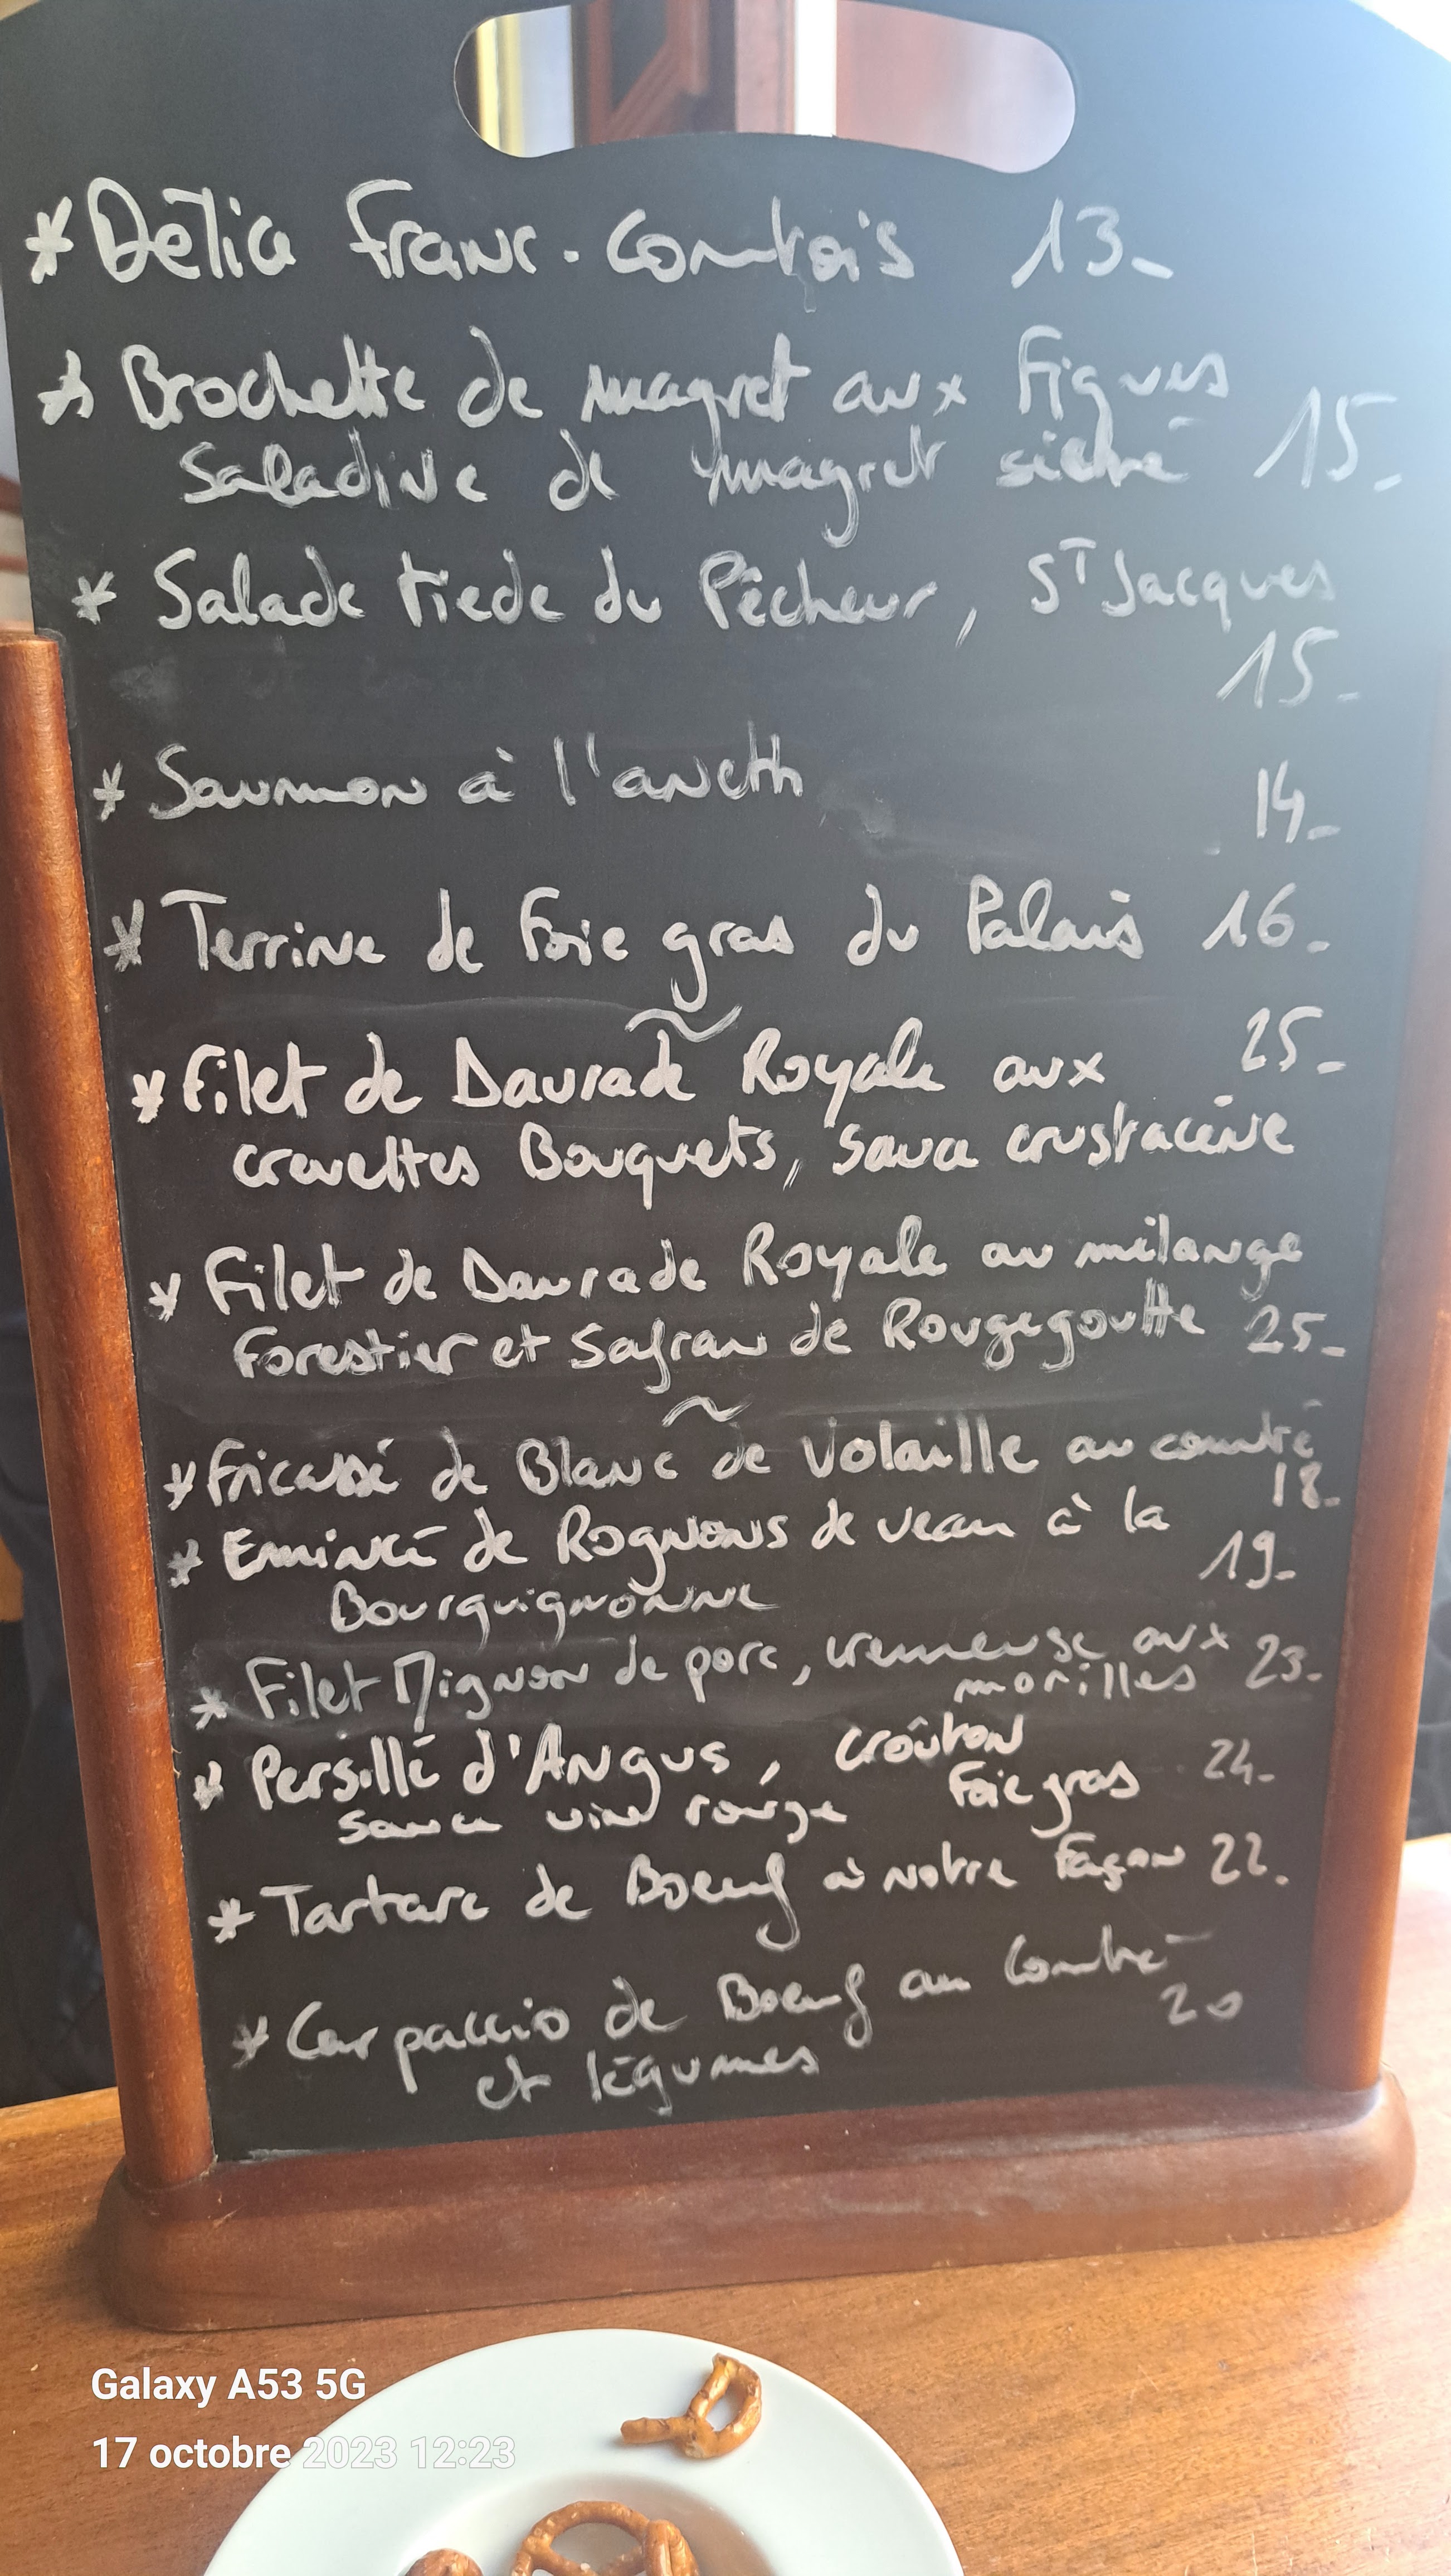 * Délice Franc-Comtois 13_
* Brochette de magret aux Figues
Saladine de magret séché 15_
* Salade tiede du Pêcheur, ST Jacques
15_
* Saumon à l'aneth 14_
* Terrine de Foie gras du Palais 16_
~
* Filet de Daurade Royale aux 25_
crevettes Bouquets, sauce crustacéine
* Filet de Daurade Royale au mélange
Forestier et Safran de Rougegoutte 25_
~
* Fricassé de Blanc de Volaille au comté
18_
* Emincé de Rognons de veau à la
Bourguignonne 19_
* Filet Mignon de porc, cremeuse aux
morilles 23_
* Persillé d'Angus, croûton
sauce vin rouge Foie gras 24_
* Tartare de Boeuf à notre Façon 22_
* Carpaccio de Boeuf au Comté
et légumes 20
Galaxy A53 5G
17 octobre 2023 12:23